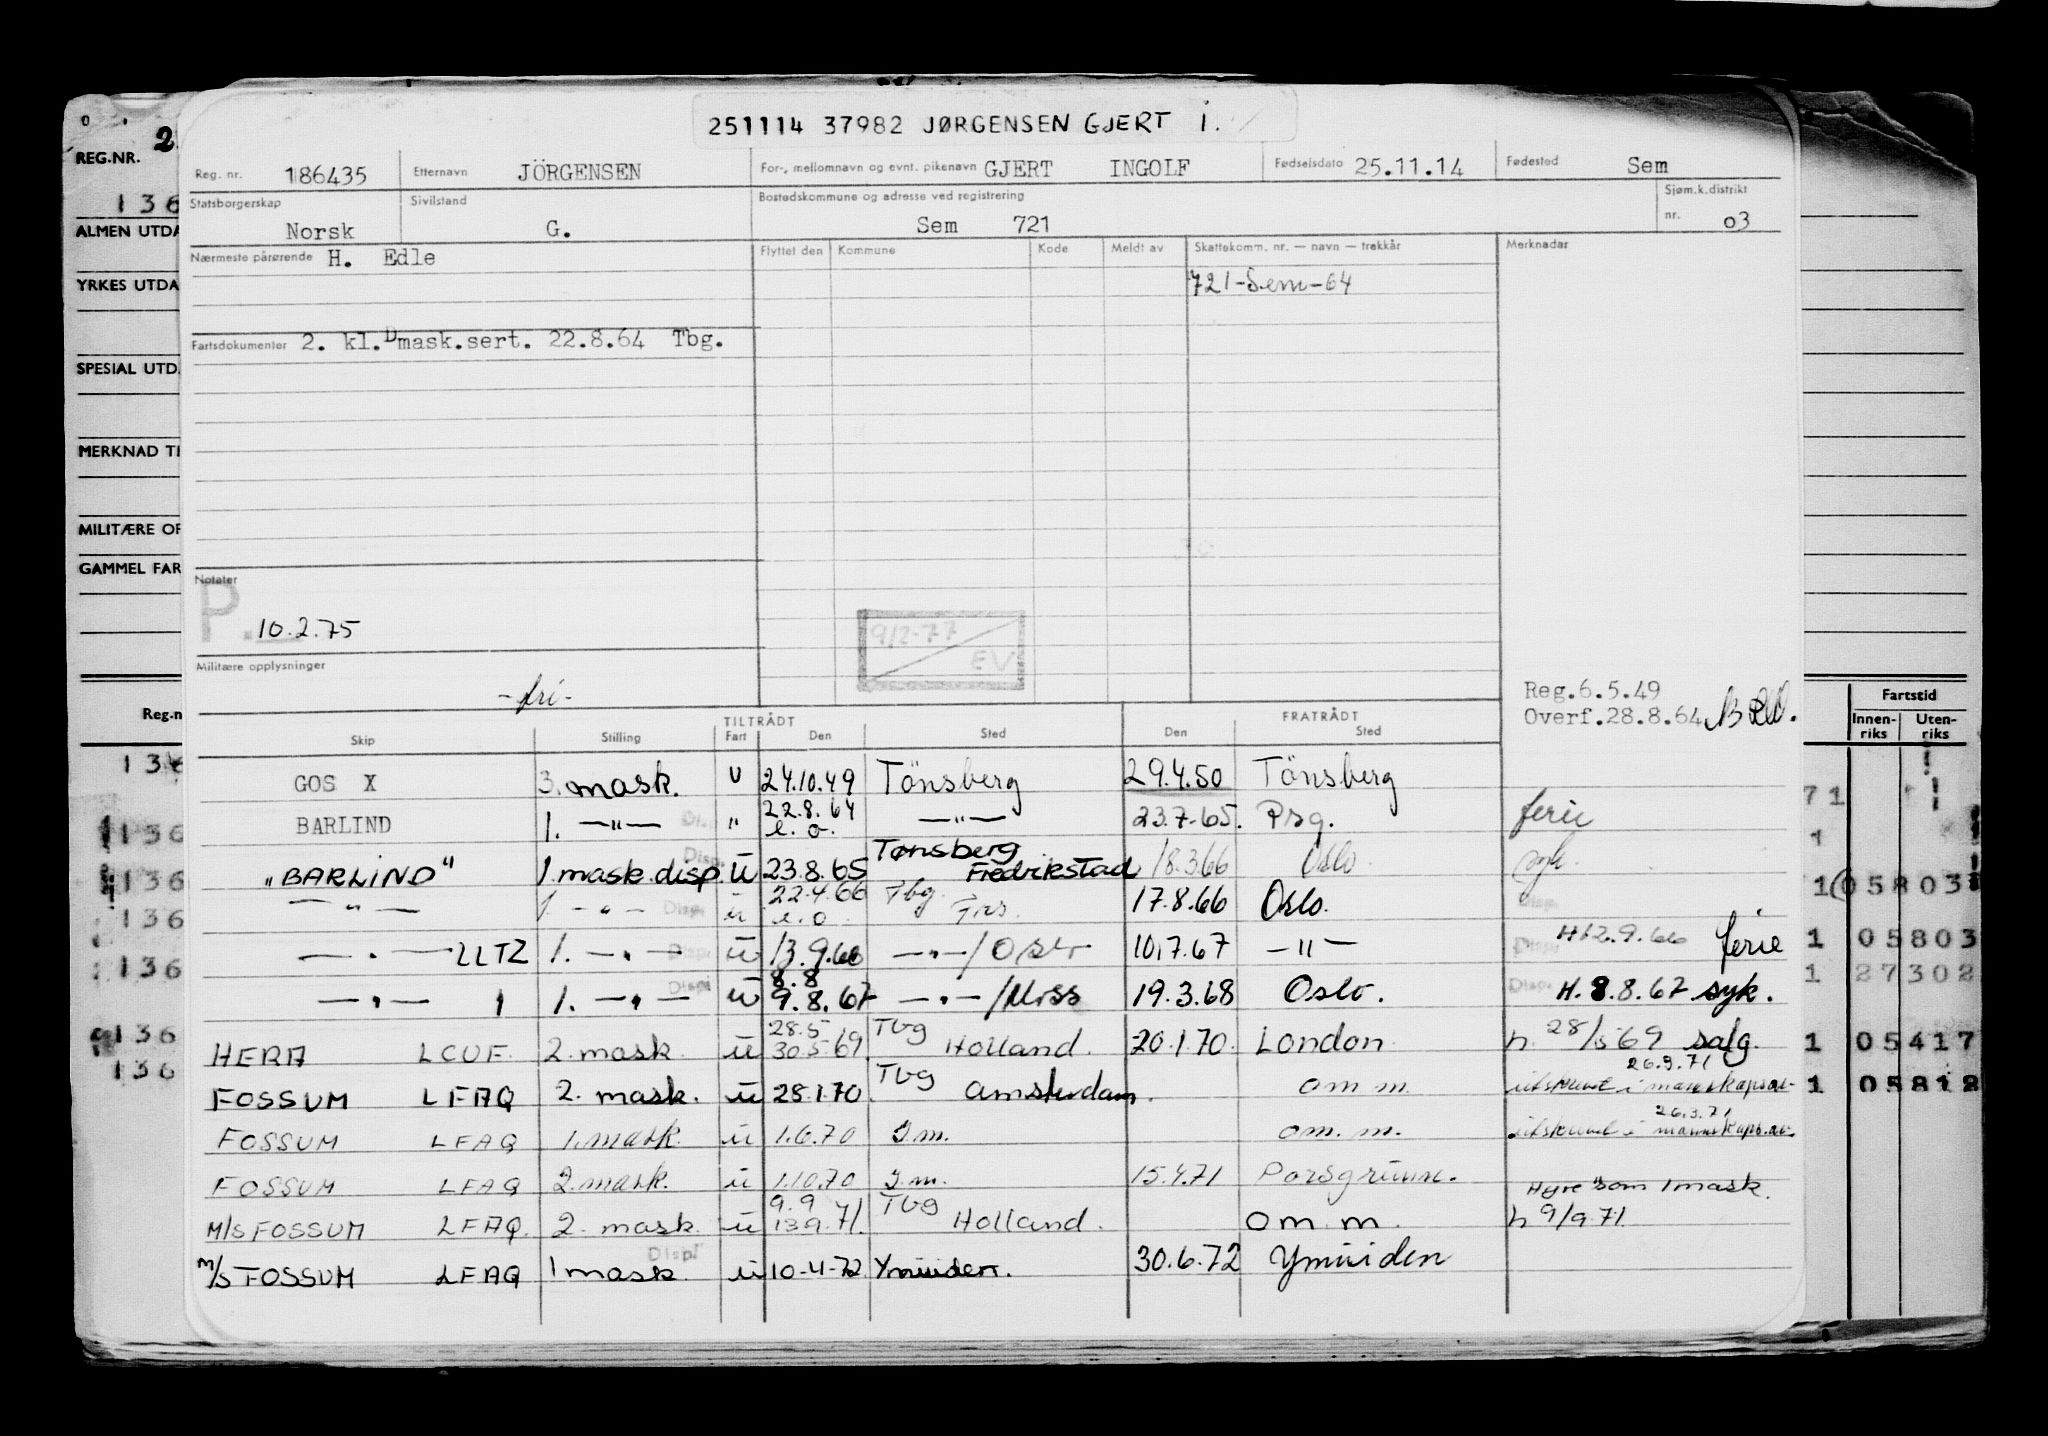 251114 37982 JØRGENSEN GJERT I.
REG.NR. 2
Reg. nr. 186435 Etternavn JÖRGENSEN For-, mellomnavn og evnt. pikenavn GJERT INGOLF Fødselsdato 25.11.14 Fødested Sem
136
Statsborgerskap Norsk Sivilstand G. Bostedskommune og adresse ved registrering Sem 721 Sjøm.k.distrikt nr. o3
ALMEN UTDA
Nærmeste pårørende H. Edle Flyttet den Kommune Kode Meldt av Skattekomm. nr. — navn — trekkår Merknader
YRKES UTDA
721-Sem-64
Fartsdokumenter 2. kl.Dmask.sert. 22.8.64 Tbg.
SPESIAL UTD.
MERKNAD TI
MILITÆRE OP
GAMMEL FAR
Notater
P. 10.2.75
9/2-77 EV
Militære opplysninger
-fri-
Reg.6.5.49
Overf.28.8.64
Reg.n
Fartstid
Innen-riks Uten-riks
TILTRÅDT FRATRÅDT
Skip Stilling Fart Den Sted Den Sted
136 GOS X 3. mask. u 24.10.49 Tönsberg 29.4.50 Tönsberg
71
136 BARLIND 1. —"— Disp. " 22.8.64 e.o. —"— 23.7.65. Prg. ferie
1
136 "BARLIND" 1.mask disp. Disp. ü 23.8.65 Tønsberg Fredrikstad 18.3.66 Oslo syk.
1 05803
136 —"— 1. —"— Disp. ü 22.4.66 e.o. Tbg. 17.8.66 Oslo. Disp.
—"— LLTZ 1. —"— Disp. ü 13.9.66 —"—/Oslo 10.7.67 —"— Disp. H12.9.66 ferie
1 05803
136 —"— 1. —"— Disp. ü 8.8 9.8.67 —"—/Moss 19.3.68 Oslo. Disp. H.8.8.67 syk.
1 27302
136 HERA LCUF 2. mask. ü 28.5 30.5.69. Tbg Holland. 20.1.70. London h. 28/5 69 salg.
1 05417
136 FOSSUM LFAQ 2. mask. ü 28.1.70 Tbg Amsterdam. om m. 26.3.71 utskrevet i mannskapsav-
1 05812
FOSSUM LFAQ 1.mask. ü 1.6.70 I.m. om. m. 26.3.71 utskrevet i mannskaps.av.
FOSSUM LFAQ 2.mask. ü 1.10.70 I.m. 15.4.71 Porsgrunn.
Hyre som 1mask.
M/S FOSSUM LFAQ. 2. mask. ü 9.9 13.9.71. Tbg Holland. om m. h 9/9.71.
M/S FOSSUM LFAQ 1mask. Displ ü 10-4-72 Ymuiden. 30.6.72 Ymuiden